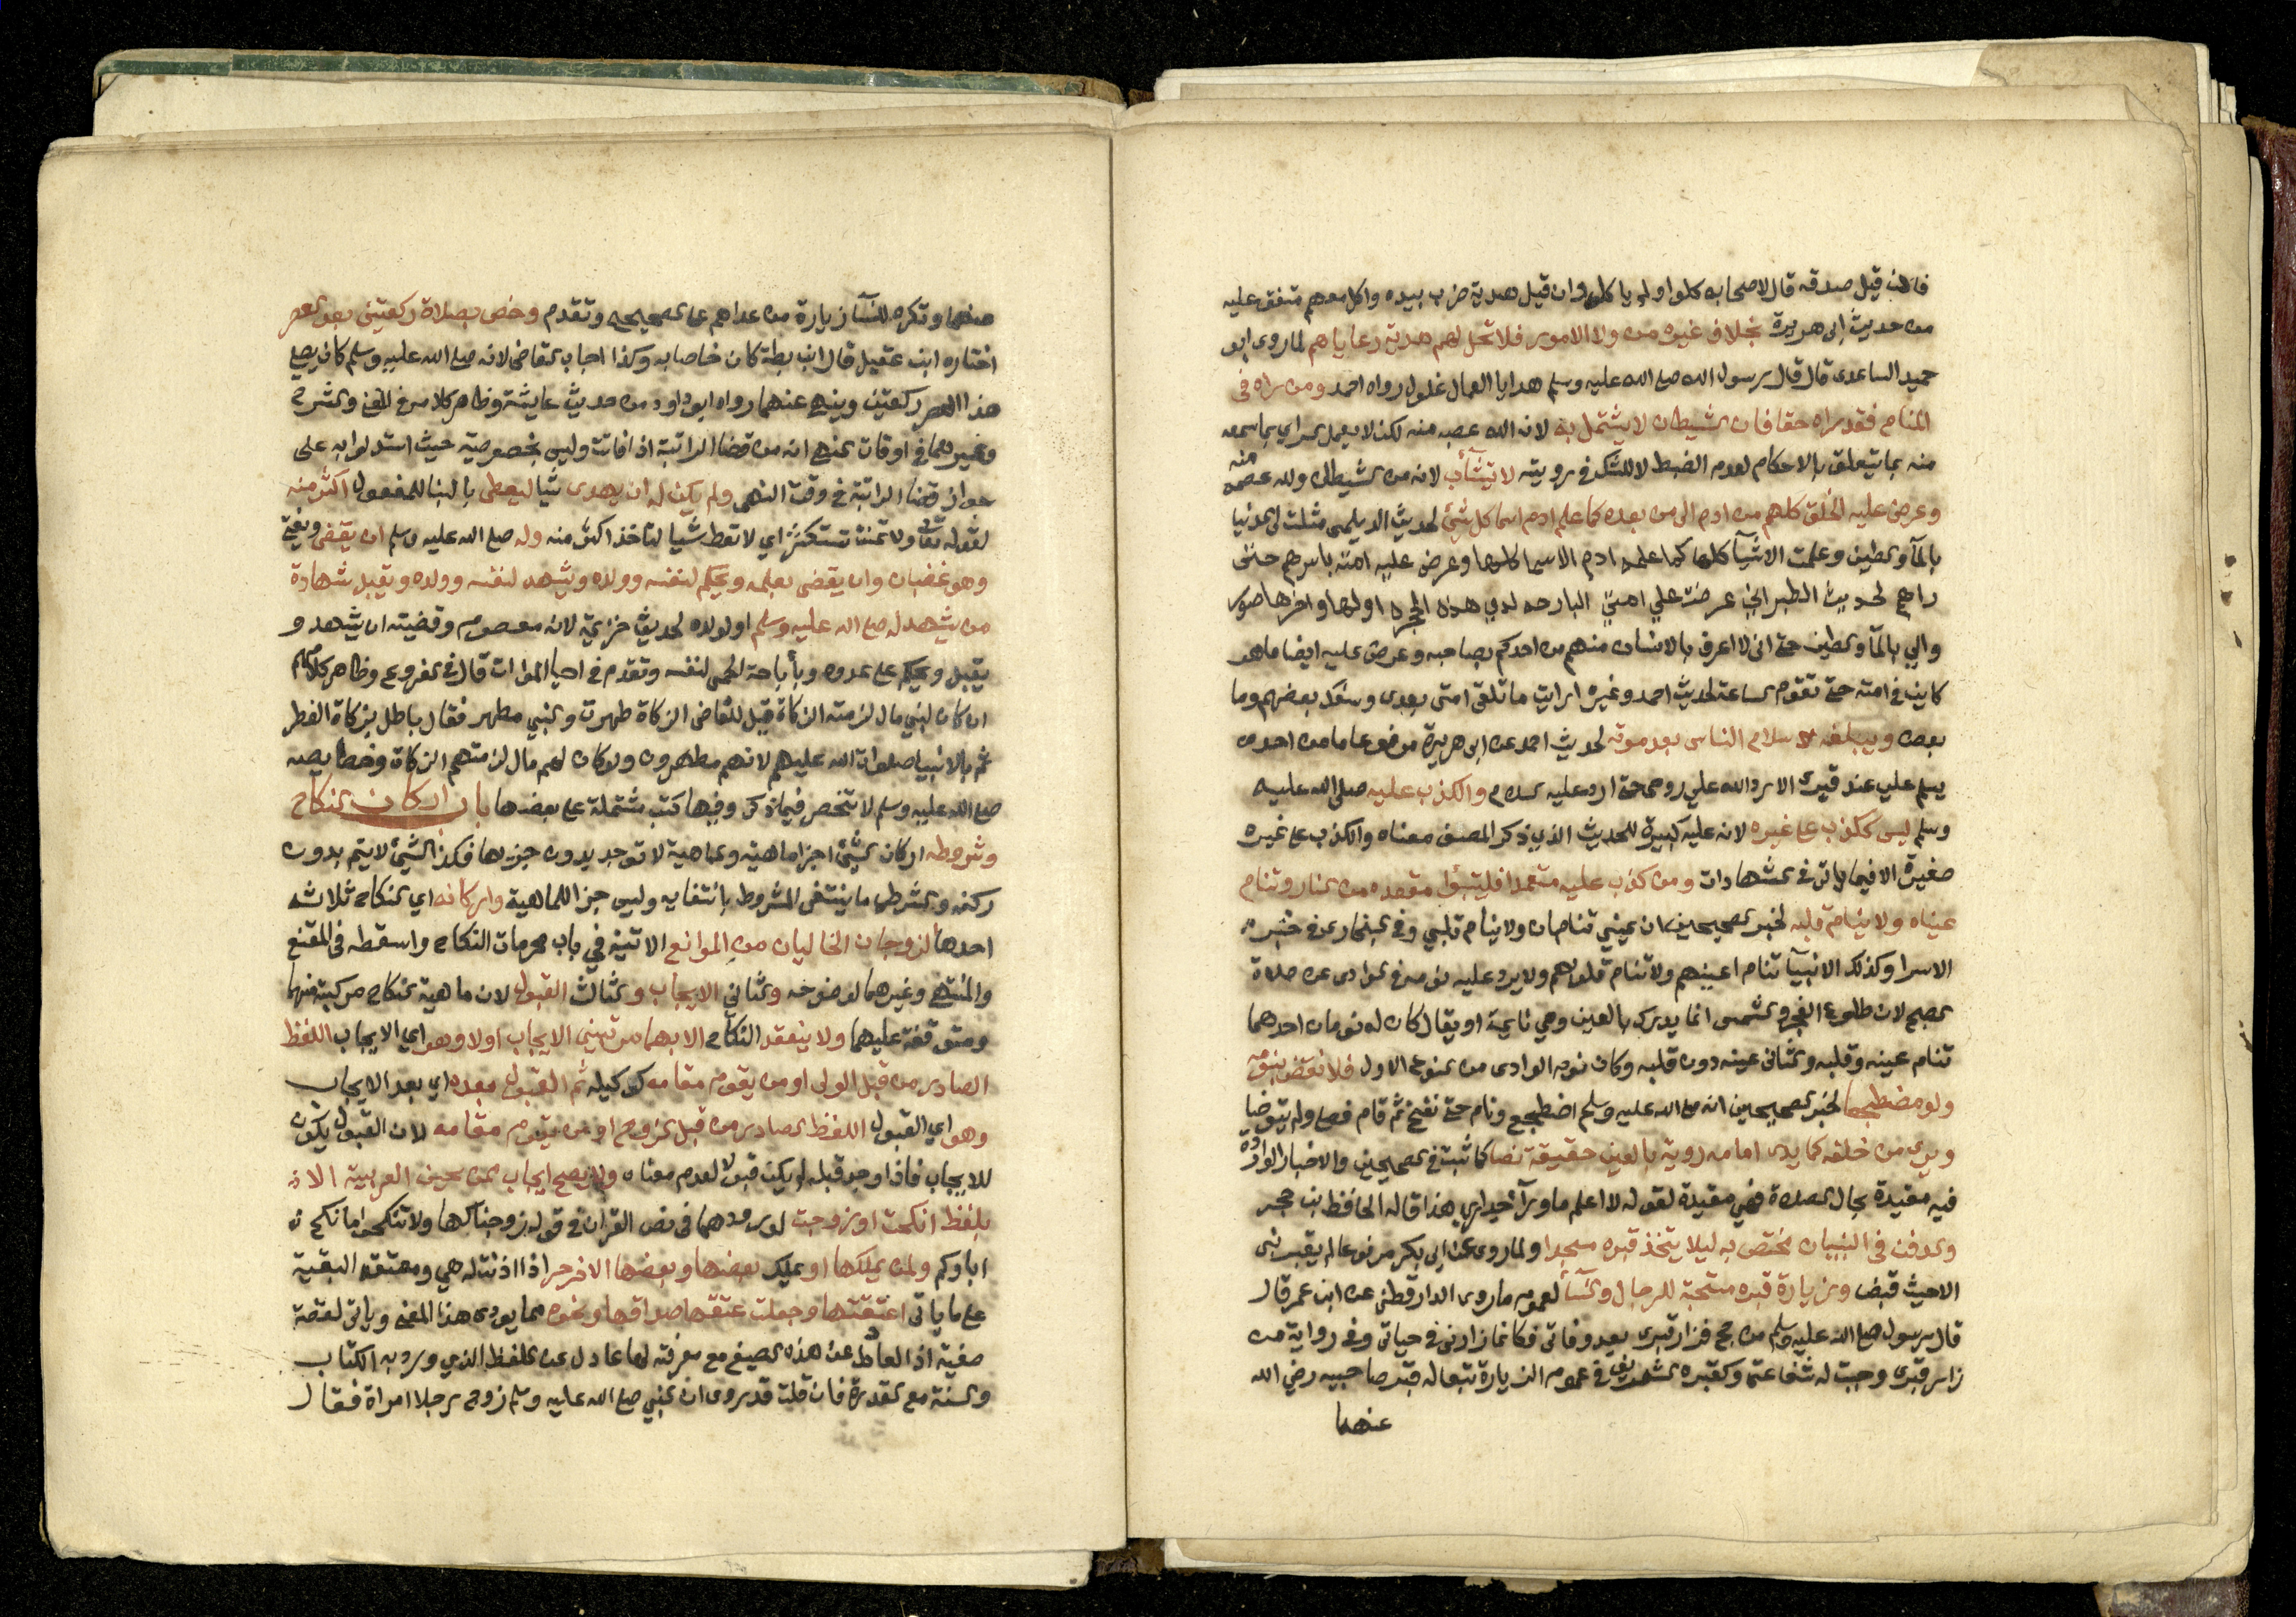 فان قيل صدقه قال لاصحابه كلوا ولم ياكل وان قيل هدية ضرب بيده واكل معهم متفق عليه
من حديث ابى هريرة بخلاف غيره من ولاة الامور فلا تحل لهم هدية رعاياهم لما روى ابو
حميد الساعدى قال قال رسول الله صلى الله عليه وسلم هدايا العمال غلول رواه احمد ومن راه فى
المنام فقد راه حقا فان الشيطان لا يتمثل به لان الله عصمه منه لكن لا يعمل الراي بما سمعه
منه بما يتعلق بالاحكام لعدم الضبط لا للشك فى رويته لا يتثآب لانه من الشيطان والله عصمه منه
وعرض عليه الخلق كلهم من ادم الى من بعده كما علم ادم اسما كل شئ لحديث الديلمى مثلت لى الدنيا
بالمآ والطين وعلمت الاشيآ كلها كما علم ادم الاسما كلها وعرض عليه امته باسرهم حتى
راهم لحديث الطبراني عرضت علي امتي البارحه لدي هذه الحجرة اولها واخرها صوروا
والي بالمآ والطين حتى انى لا اعرف بالانسان منهم من احدكم بصاحبه وعرض عليه ايضا ما هو
كاين فى امته حتى تقوم الساعة لحديث احمد وغيره اريت ما تلقى امتى بعدى وسفك بعضهم دما
بعض ويبلغه سلام الناس بعد موته لحديث احمد عن ابى هريرة مرفوعا ما من احد
يسلم علي عند قبرى الا رد الله علي روحى حتى ارد عليه السلام والكذب عليه صلى الله عليه
وسلم ليس ككذب على غيره لانه عليه كبيرة للحديث الذي ذكر المصنف معناه والكذب على غيره
صغيرة الا فيما ياتى فى الشهادات ومن كذب عليه متعمدا فليتبوأ مقعده من النار وتنام
عيناه ولا ينام قلبه لخبر الصحيحين ان عيني تنامان ولا ينام قلبي وفى البخارى فى خبر
الاسرا وكذلك الانبيآ تنام اعينهم ولا تنام قلوبهم ولا يرد عليه نومه فى الوادى عن صلاة
الصبح لان طلوع الفجر والشمس انما يدرك بالعين وهي نايمة او يقال كان له نومان احدهما
تنام عينه وقلبه والثانى عينه دون قلبه وكان نوم الوادى من النوع الاول فلا نقض بنومه
ولو مضطجعا لخبر الصحيحين انه صلى الله عليه وسلم اضطجع ونام حتى نفخ ثم قام فصلى ولم يتوضا
ويرى من خلفه كما يرى امامه روية بالعين حقيقة نصا كما ثبت فى الصحيحين والاخبار الواردة
فيه مقيدة بحال الصلاة فهي مقيدة لقوله لا اعلم ما ورآ جدارى هذا قاله الحافظ بن حجر
والدفن فى البنيان مختص به ليلا يتخذ قبره مسجدا ولما روى عن ابى بكر مرفوعا لم يقبر نبى
الا حيث قبض وزيارة قبره مستحبة للرجال والنسآ لعموم ما روى الدارقطنى عن ابن عمر قال
قال رسول صلى الله عليه وسلم من حج فزار قبرى بعد وفاتى فكانما زارنى فى حياتى وفى رواية من
زار قبرى وجبت له شفاعتى وكقبره الشريف فى عموم الزيارة تبعا له قبر صاحبيه رضي الله
عنهما
عنهما وتكره للنسآ زيارة من عداهم على الصحيح وتقدم وخص بصلاة ركعتين بعد العصر
اختاره ابن عقيل قال ابن بطة كان خاصا به وكذا اجاب القاضى لانه صلى الله عليه وسلم كان يصلي
هذا العصر ركعتين وينهى عنهما رواه ابو داود من حديث عايشة وظاهر كلامه فى المغنى والشرح
وغيرهما فى اوقات النهى انه من قضا الراتبة اذا فاتت وليس بخصوصية حيث استدلوا به على
جواز قضا الراتبة فى وقت النهى ولم يكن له ان يهدى شيا ليعطى بالبنا للمفعول اكثر منه
لقوله تعالى ولا تمنن تستكثر اي لا تعط شيا لتاخذ اكثر منه وله صلى الله عليه وسلم ان يقضى ويفتى
وهو غضبان وان يقضى بعلمه ويحكم لنفسه وولده ويشهد لنفسه وولده ويقبل شهادة
من يشهد له صلى الله عليه وسلم او لولده لحديث خزيمة لانه معصوم وقضيته ان يشهد و
يقبل ويحكم على عدوه وبأباحة الحمى لنفسه وتقدم فى احيا الموات قال فى الفروع وظاهر كلامهم
ان كان لنبي مال لزمته الزكاة قيل للقاضى الزكاة طهرة والنبي مطهر فقال باطل بزكاة الفطر
ثم بالانبيا صلوات الله عليهم لانهم مطهرون ولو كان لهم مال لزمتهم الزكاة وخصايصه
صلى الله عليه وسلم لا تنحصر فيما ذكر وفيها كتب مشتملة على بعضها باب اركان النكاح
وشروطه اركان الشئ اجزا ماهيته والماهية لا توجد بدون جزيها فكذا الشئ لا يتم بدون
ركنه والشرط ما ينتفى المشروط بانتفايه وليس جزا للماهية واركانه اي النكاح ثلاثة
احدها الزوجان الخاليان من الموانع الاتية في باب محرمات النكاح واسقطه فى المقنع
والمنتهى وغيرهما لوضوحه والثانى الايجاب والثالث القبول لان ماهية النكاح مركبة منهما
ومتوقفة عليهما ولا ينعقد النكاح الا بهما مرتبين الايجاب اولا وهو اي الايجاب اللفظ
الصادر من قبل الولى او من يقوم مقامه كوكيله ثم القبول بعده اي بعد الايجاب
وهو اي القبول اللفظ الصادر من قبل الزوج او من يقوم مقامه لان القبول يكون
للايجاب فاذا وجد قبله لم يكن قبولا لعدم معناه ولا يصح ايجاب ممن يحسن العربية الا
بلفظ انكحت او زوجت لورودهما فى نص القران فى قوله زوجناكها ولا تنكحوا ما نكح
اباوكم ولمن يملكها او يملك بعضها وبعضها الاخر حر اذا اذنت له هي ومعتقه البقية
على ما ياتى اعتقتها وجعلت عتقها صداقها ونحوه مما يودى هذا المعنى وياتى لقصة
صفية اذ العادل عن هذه الصيغ مع معرفته لها عادل عن اللفظ الذي ورد به الكتاب
والسنة مع القدرة فان قلت قد روى ان النبي صلى الله عليه وسلم زوج رجلا امراة فقال